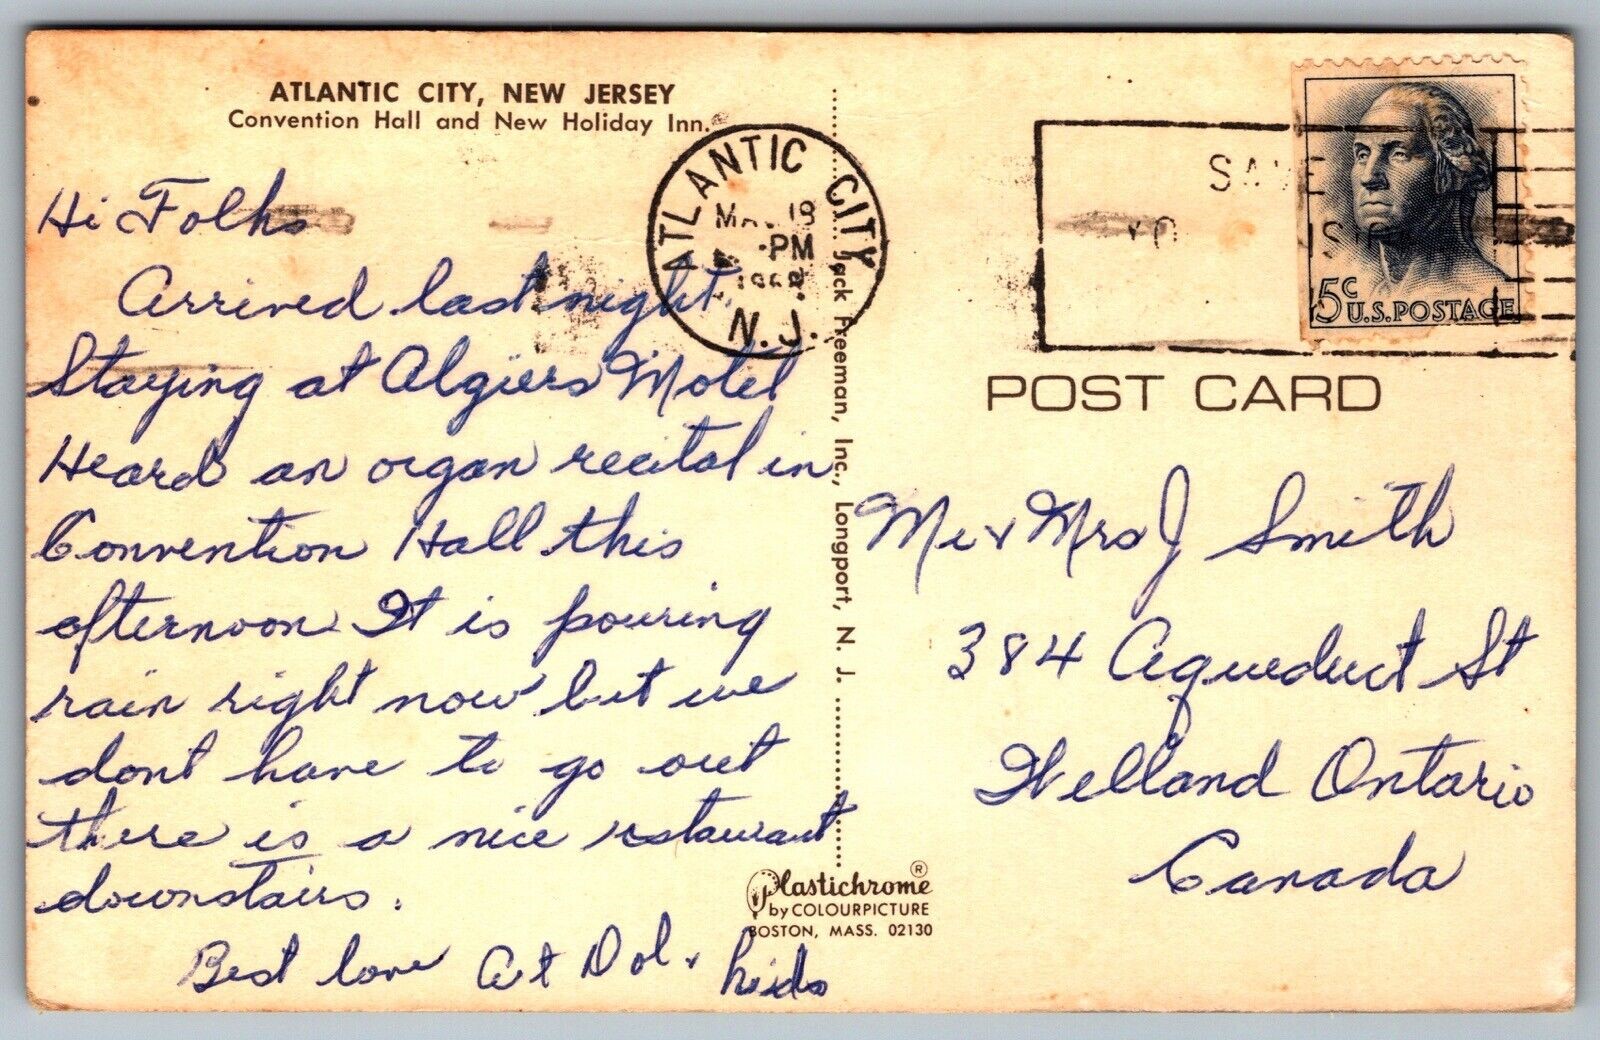 ATLANTIC CITY, NEW JERSEY
Convention Hall and New Holiday Inn.
Hi Folks
Arrived last night.
Staying at Algiers Motel
Heard an organ recital in
Convention Hall this
afternoon. It is pouring
rain right now but we
dont have to go out
there is a nice restaurant
downstairs.
Best love Art Dol & kids
Jack Freeman, Inc., Longport, N. J.
Plastichrome ®
by COLOURPICTURE
BOSTON, MASS. 02130
ATLANTIC CITY
PM
N.J.
5c
U.S. POSTAGE
POST CARD
Mr & Mrs J Smith
384 Aqueduct St
Welland Ontario
Canada